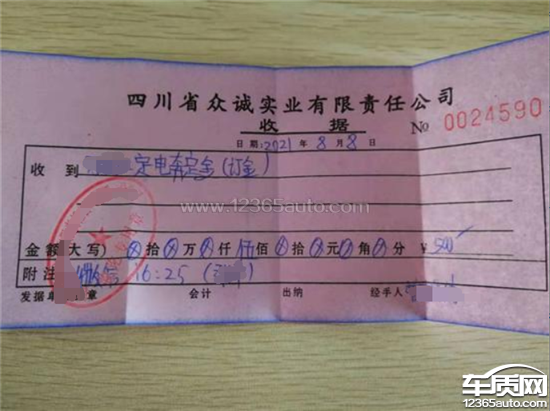 四川省众诚实业有限责任公司
收据
№ 0024590
日期:2021年8月8日
收到 定电车定金(订金)
www.12365auto.com
金额(大写) 拾 万 仟 伍佰 拾 元 角 分 ¥500
附注 16:25
发据单 章 会计 出纳 经手人
车质网
12365auto.com